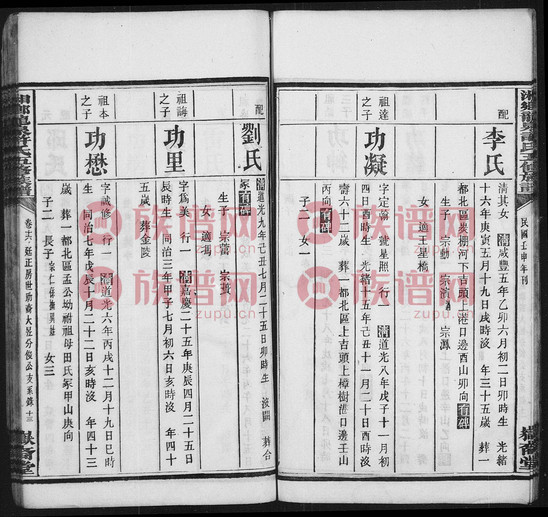 民國壬申年刊
配
李氏
清其女 清咸豐五年乙卯六月初二日卯時生 光緒
十六年庚寅五月十九日戌時沒 年三十五歲 葬一
都北區炭棚河下吉頭上港口邊酉山卯向有碑
生子 宗勳 宗濱 宗源
女一 適王星橋
祖達
之子
功凝
字定 號星照 行一 清道光八年戊子十一月初
四日酉時生 光緒十五年己丑十一月二十日酉時沒
齊六十二歲 葬一都北區上吉頭上樟樹灣口邊壬山
丙向有碑
配
劉氏
清道光九年己丑七月二十五日卯時生 沒 葬台
家有碑
生子 宗
女一 適馮
祖誨
之子
功里
字為美 行一 清嘉慶二十五年庚辰四月二十五日
長時生 同治三年甲子七月初六日亥時沒 年四十
五歲 葬金陵
祖本
之子
功懋
字誠修 行一 清道光六年丙戌十二月十九日巳時
生 同治七年戊辰十月二十二日亥時沒 年四十三
歲 葬一都北區孟公坳祔祖母田氏冢甲山庚向
子二 長子 女三
卷十六
嶽裔堂